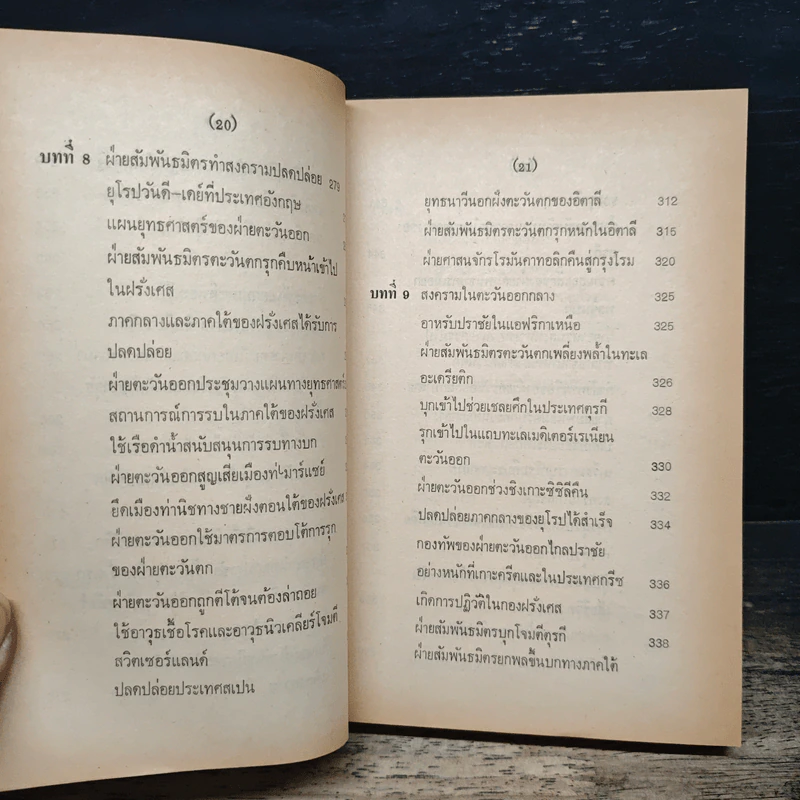 (20)
บทที่ 8 ฝ่ายสัมพันธมิตรทำสงครามปลดปล่อย 279
ยุโรปวันดี-เดย์ที่ประเทศอังกฤษ
แผนยุทธศาสตร์ของฝ่ายตะวันออก
ฝ่ายสัมพันธมิตรตะวันตกรุกคืบหน้าเข้าไป
ในฝรั่งเศส
ภาคกลางและภาคใต้ของฝรั่งเศสได้รับการ
ปลดปล่อย
ฝ่ายตะวันออกประชุมวางแผนทางยุทธศาสตร์
สถานการณ์การรบในภาคใต้ของฝรั่งเศส
ใช้เรือดำน้ำสนับสนุนการรบทางบก
ฝ่ายตะวันออกสูญเสียเมืองท่ามาร์แซย์
ยึดเมืองท่านิชทางชายฝั่งตอนใต้ของฝรั่งเศส
ฝ่ายตะวันออกใช้มาตรการตอบโต้การรุก
ของฝ่ายตะวันตก
ฝ่ายตะวันออกถูกตีโต้จนต้องล่าถอย
ใช้อาวุธเชื้อโรคและอาวุธนิวเคลียร์โจมตี
สวิตเซอร์แลนด์
ปลดปล่อยประเทศสเปน
(21)
ยุทธนาวีนอกฝั่งตะวันตกของอิตาลี 312
ฝ่ายสัมพันธมิตรตะวันตกรุกหนักในอิตาลี 315
ฝ่ายศาสนจักรโรมันคาทอลิกคืนสู่กรุงโรม 320
บทที่ 9 สงครามในตะวันออกกลาง 325
อาหรับปราชัยในแอฟริกาเหนือ 325
ฝ่ายสัมพันธมิตรตะวันตกเพลี่ยงพล้ำในทะเล
อะเดรียติก 326
บุกเข้าไปช่วยเชลยศึกในประเทศตุรกี 328
รุกเข้าไปในแถบทะเลเมดิเตอร์เรเนียน
ตะวันออก 330
ฝ่ายตะวันออกช่วงชิงเกาะซิซิลีคืน 332
ปลดปล่อยภาคกลางของยุโรปได้สำเร็จ 334
กองทัพของฝ่ายตะวันออกไกลปราชัย
อย่างหนักที่เกาะครีตและในประเทศกรีซ 336
เกิดการปฏิวัติในกองฝรั่งเศส 337
ฝ่ายสัมพันธมิตรบุกโจมตีตุรกี 338
ฝ่ายสัมพันธมิตรยกพลขึ้นบกทางภาคใต้